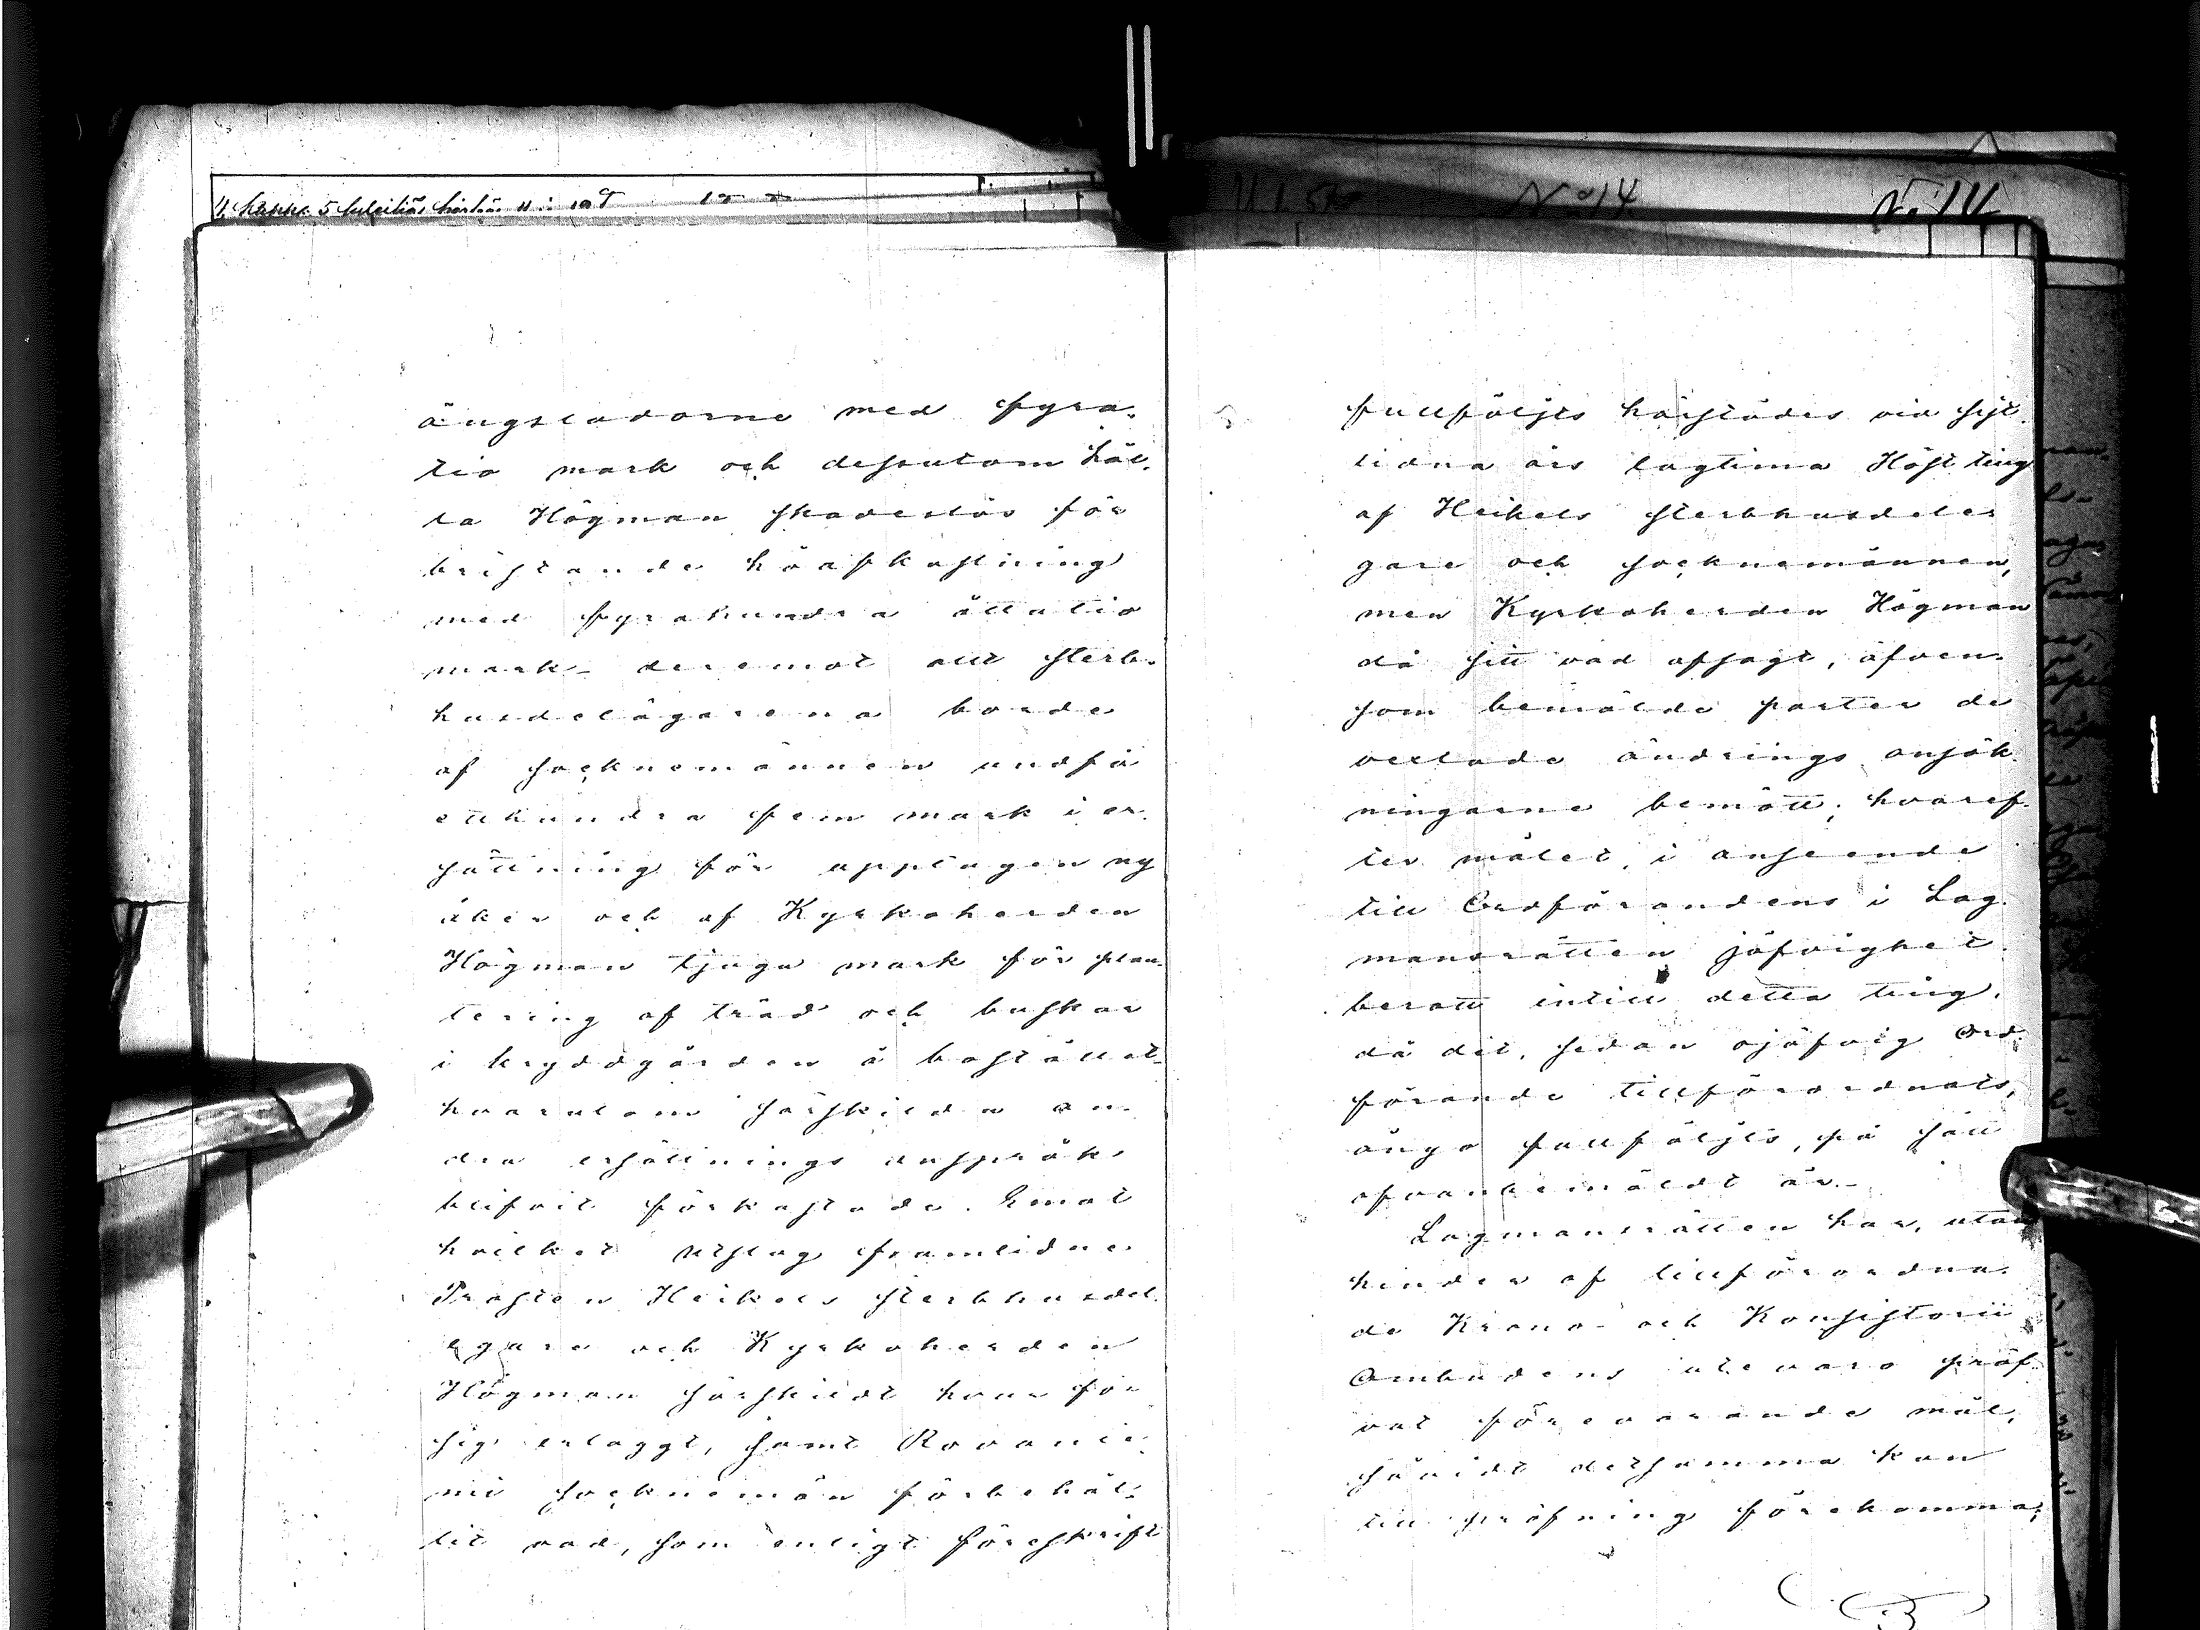 N:o 14
N:o 14
ängsladorne med fyra-
tio mark och dessutom hål-
la Högman skadeslös för
bristande höafkastning
med fyrahundra åttatio
mark - deremot allt sterb-
husdelägarena borde
af socknemännen undfå
etthundra fem mark i er-
sättning för upptagen ny
åker och af Kyrkoherden
Högman tjugu mark för plan-
tering af träd och buskar
i krydd­gården å bostället
hvarutom särskilda an-
dra ersättnings anspråk
blifvit förkastade. Emot
hvilket utslag framlidne
Prosten Heikels sterbhusdel-
egare och Kyrkoherden
Högman särskildt hvar för
sig erlaggt, samt Rovanie-
mi socknemän förbehål-
lit vad, som enligt föreskrift
fullföljts härstädes vid sist-
lidna års lagtima Höst ting
af Heikels sterbhusdele-
gare och socknemännen,
men Kyrkoherden Högman
då sitt vad afsagt, äfven-
som bemälde parter de
vellade ändrings ansök-
ningarne bemött; hvaref-
ter målet, i anseende
till Ordförandens i Lag-
mansrätten jäfvighet
berott intill detta ting,
då det, sedan ojäfvig Ord-
förande tillförordnats,
ånyo fullföljts, på sätt
ofvanbemäldt är.-
Lagmansrätten har, utan
hinder af tillförordna-
de Krono- och Konsistorii
Ombudens utevaro pröf-
vat förevarande mål,
såvidt detsamma kan
till pröfning förekomma;